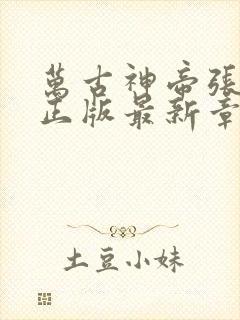 萬古神帝張
正版最新章
土豆小妹